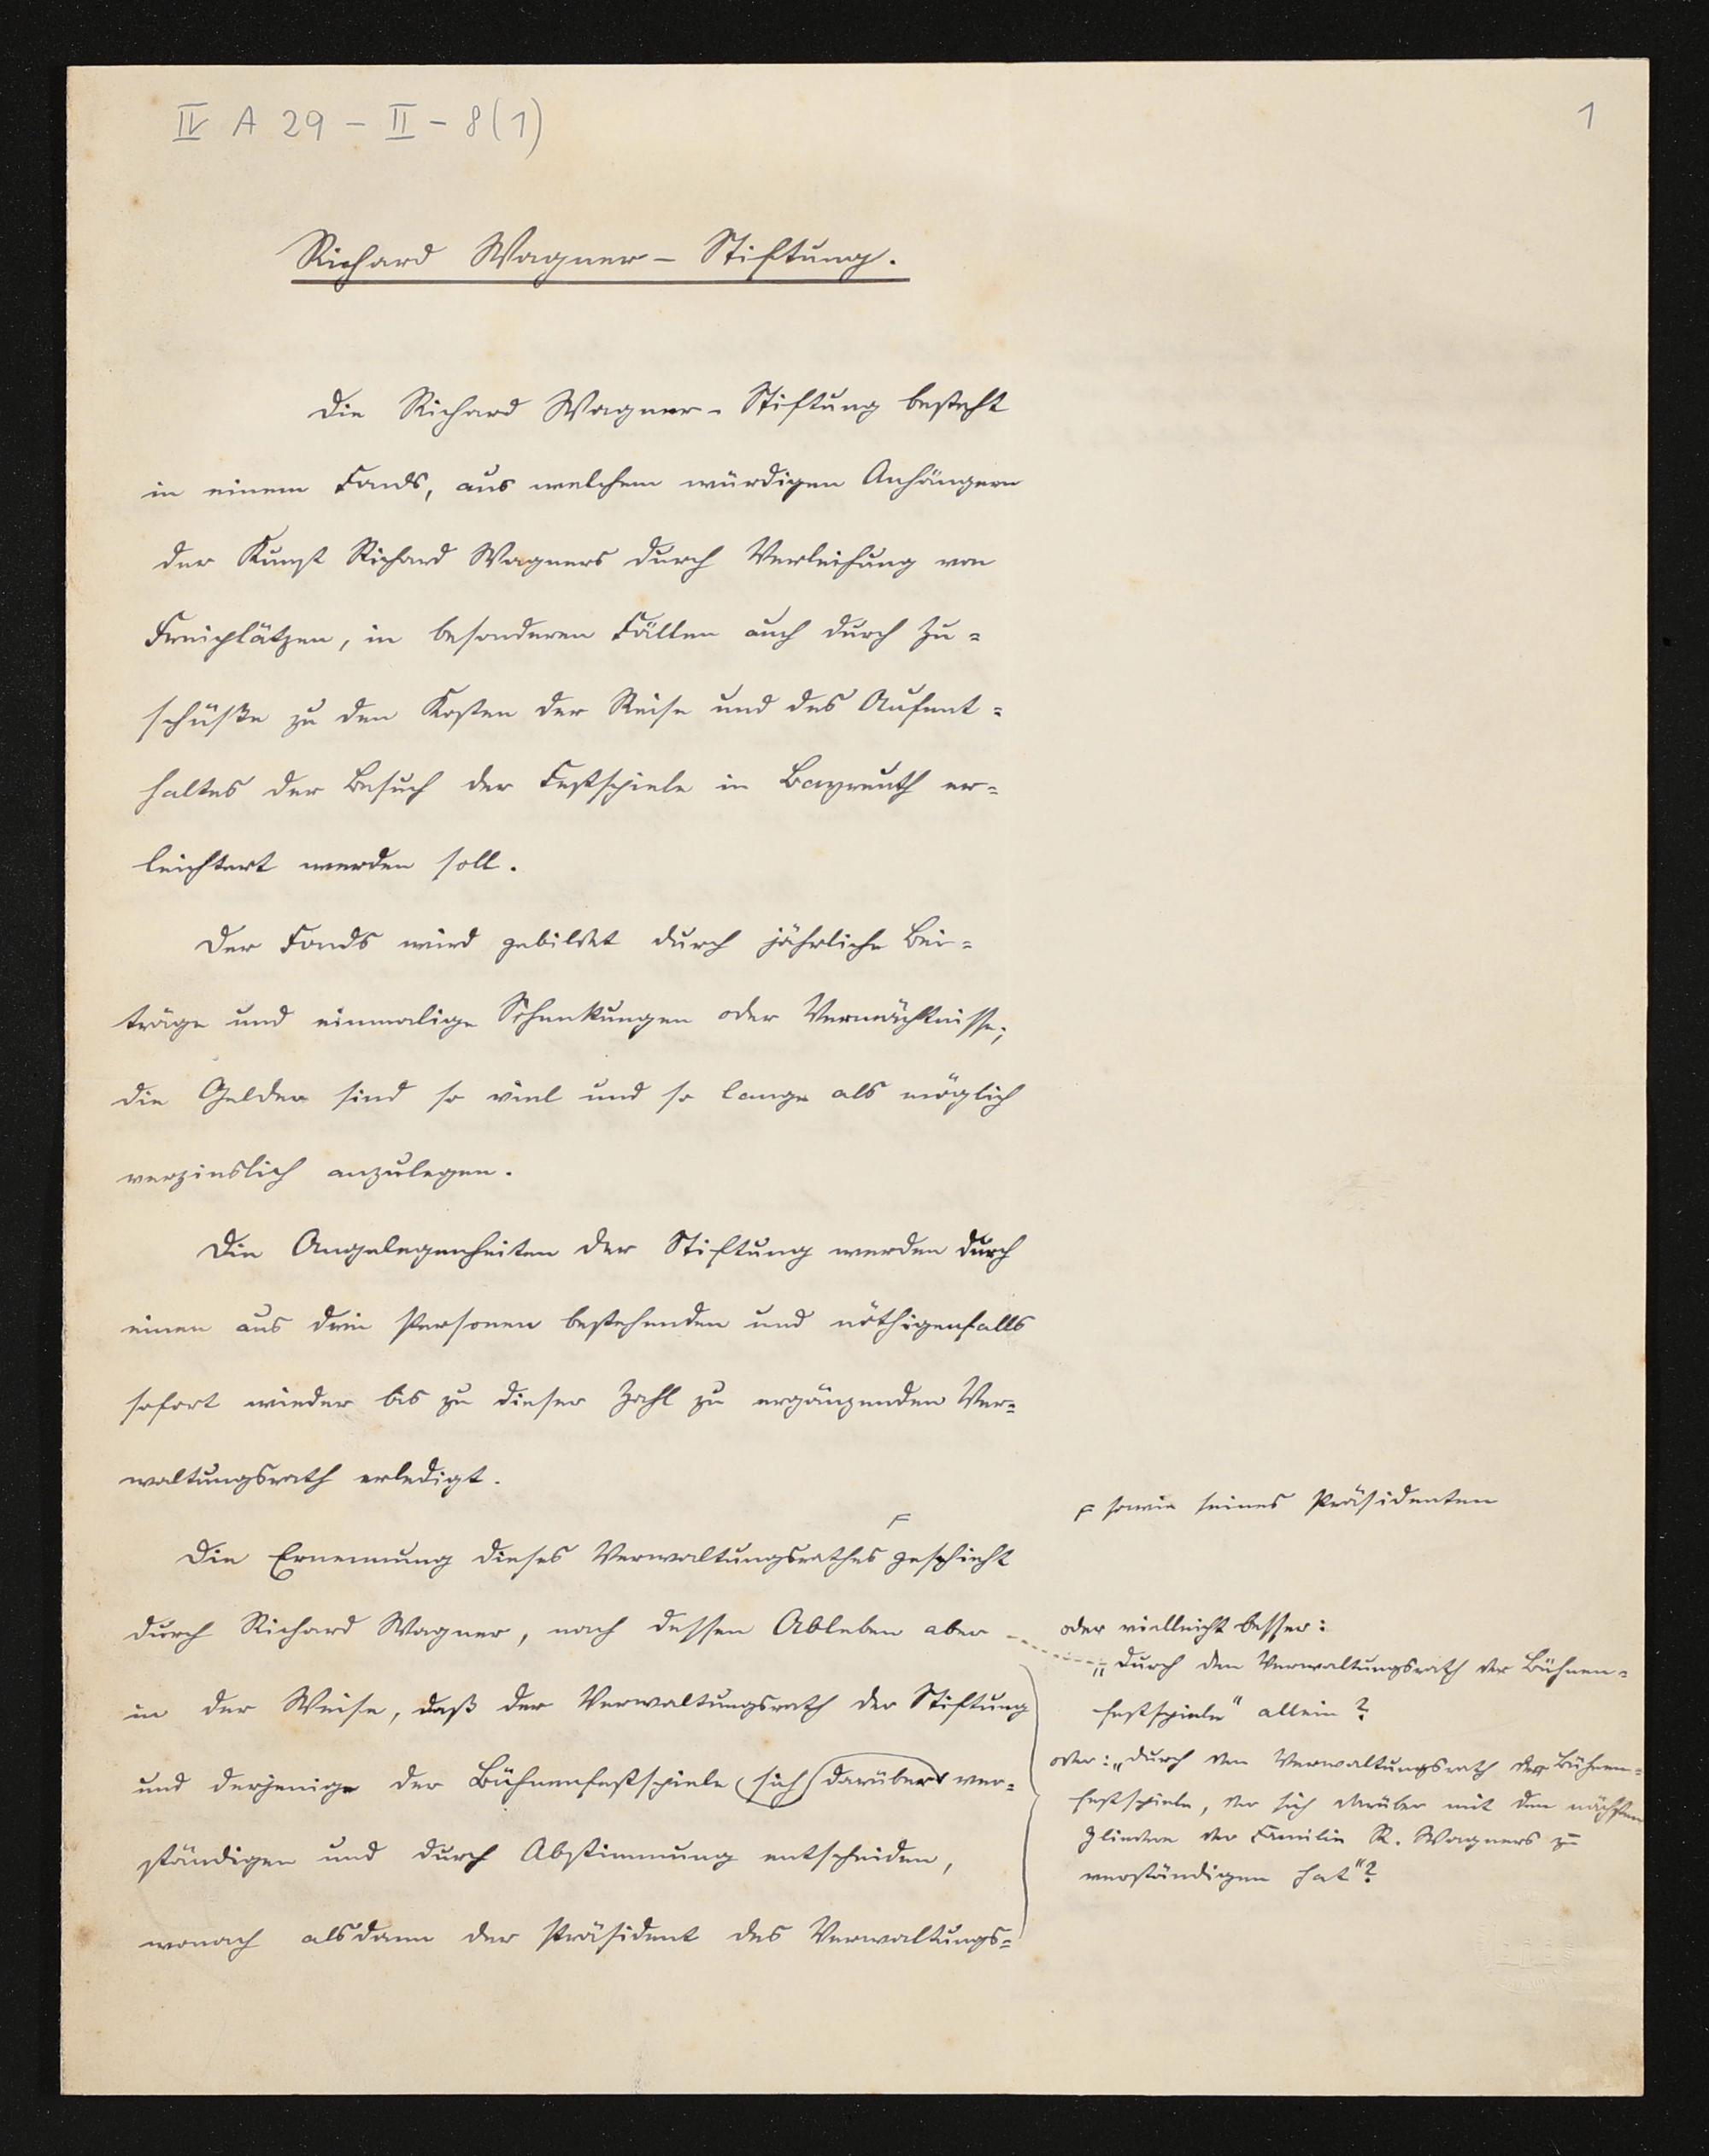 IV A 29 – II – 8(1)
1
Richard Wagner – Stiftung.
Die Richard Wagner-Stiftung besteht
in einem Fonds, aus welchem würdigen Anhängern
der Kunst Richard Wagners durch Verleihung von
Freiplätzen, in besonderen Fällen auch durch Zu=
schüße zu den Kosten der Reise und des Aufent=
haltes der Besuch der Festspiele in Bayreuth er=
leichtert werden soll.
Der Fonds wird gebildet durch jährliche Bei=
träge und einmalige Schenkungen oder Vermächtnisse;
die Gelder sind so viel und so lange als möglich
verzinslich anzulegen.
Die Angelegenheiten der Stiftung werden durch
einen aus drei Personen bestehenden und nöthigenfalls
sofort wieder bis zu dieser Zahl zu ergänzenden Ver=
waltungsrath erledigt.
Die Ernennung dieses Verwaltungsrathes ┌ geschieht
durch Richard Wagner, nach dessen Ableben aber
in der Weise, daß der Verwaltungsrath der Stiftung
und derjenige der Bühnenfestspiele sich darüber ver=
ständigen und durch Abstimmung entscheiden,
wonach alsdann der Präsident des Verwaltungs=
┌ sowie seines Präsidenten
oder vielleicht besser:
„durch den Verwaltungsrath der Bühnen=
festspiele" allein?
oder: „durch den Verwaltungsrath der Bühnen=
festspiele, der sich darüber mit den nächsten
Gliedern der Familie R. Wagners zu
verständigen hat"?